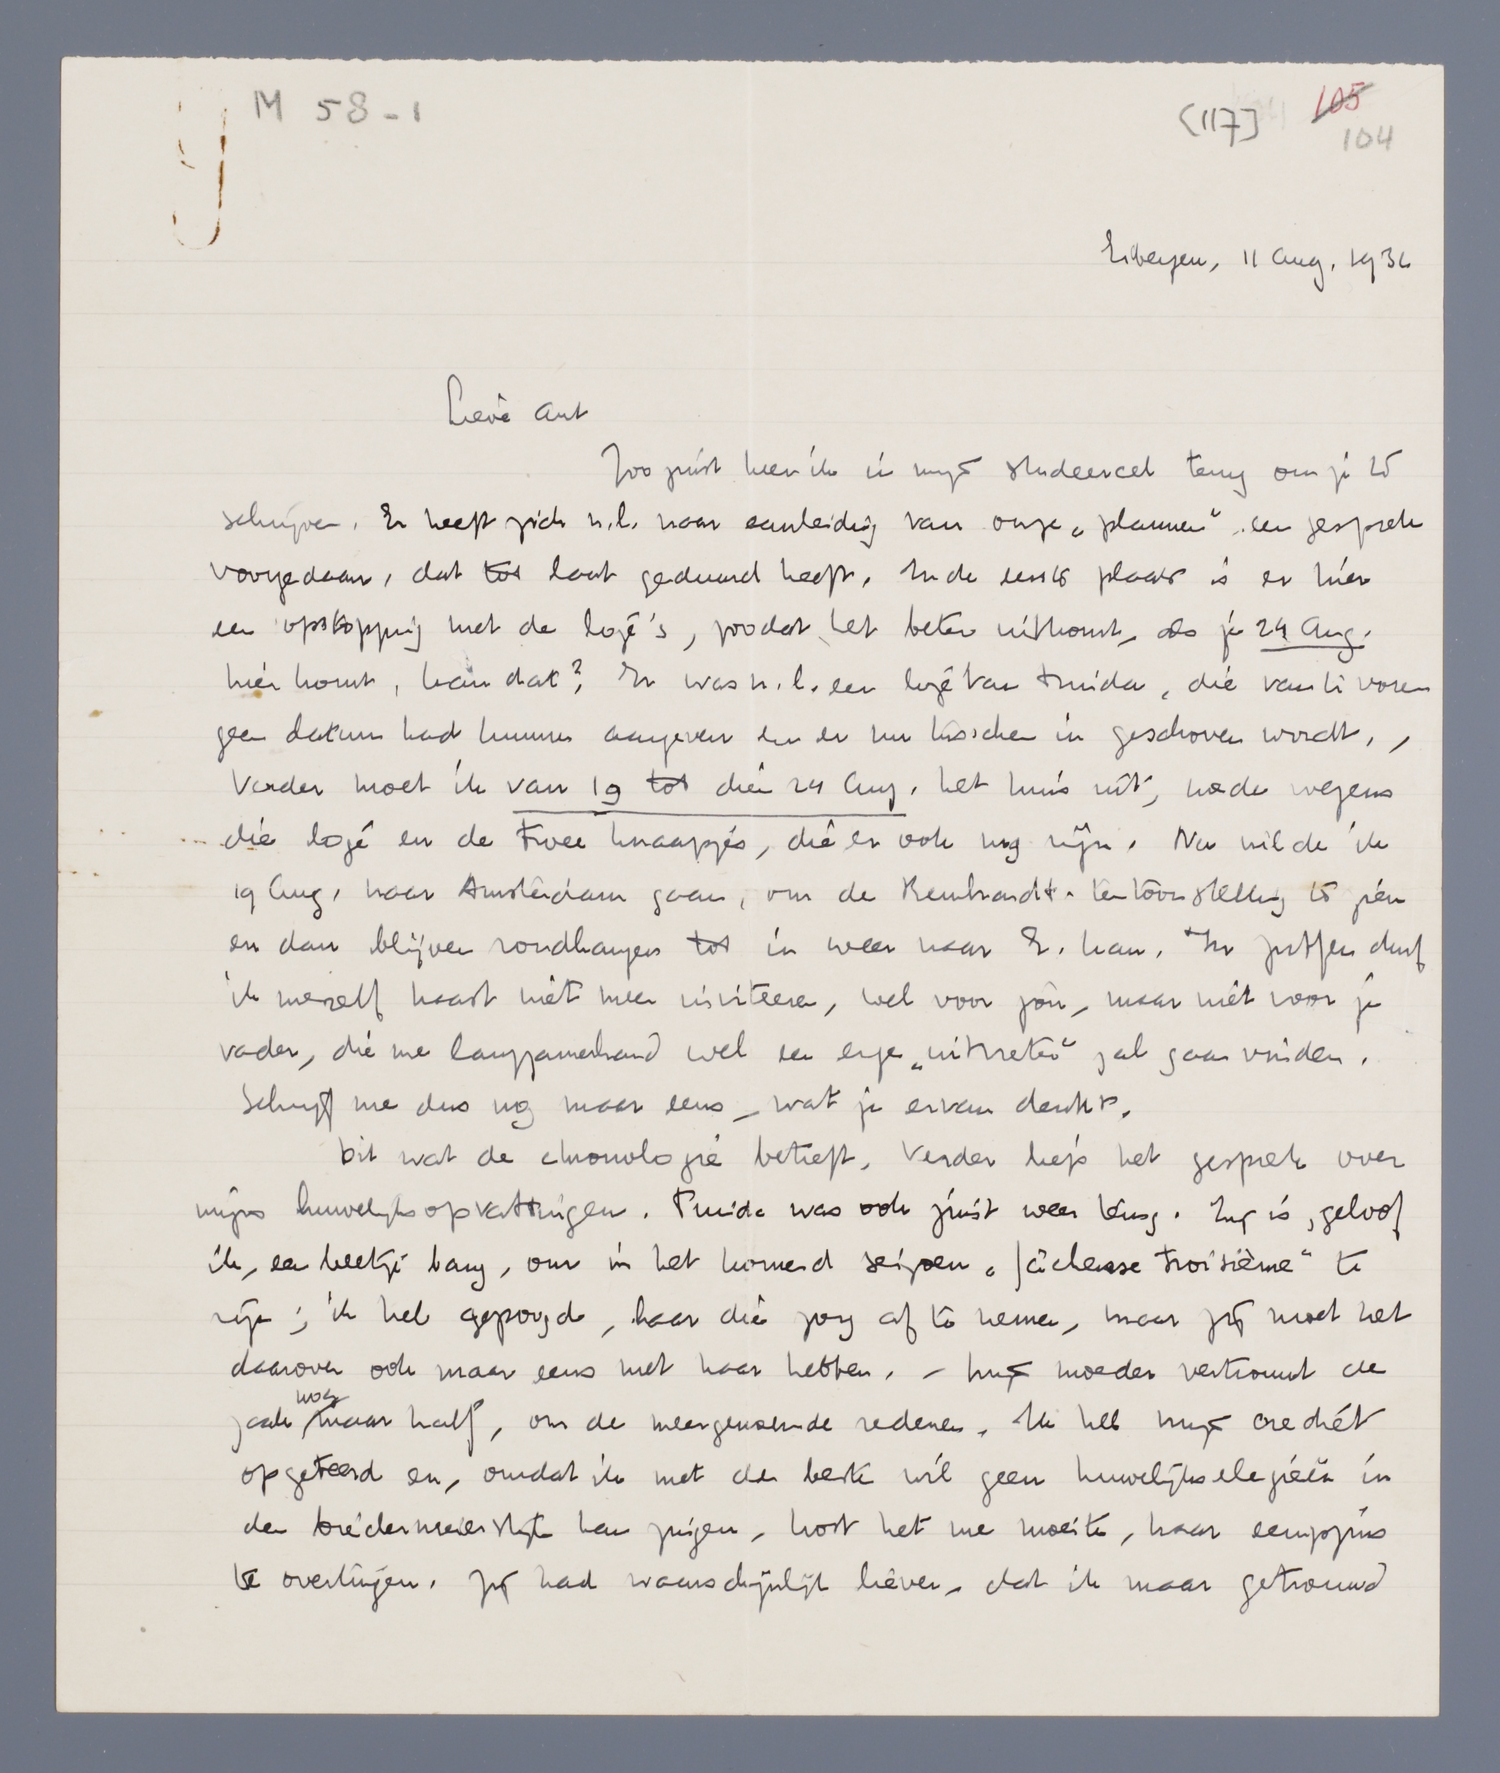 M 58-1
(117] 105
104
Eibergen, 11 Aug. 1932
Lieve Ant
Zoo juist keer ik in mijn studeercel terug om je te
schrijven. Er heeft zich n.l. naar aanleiding van onze „plannen" een gesprek
voorgedaan, dat tot laat geduurd heeft. In de eerste plaats is er hier
een opstopping met de logé's, zoodat het beter uitkomt, als je 24 Aug.
hier komt, kan dat? Er was n.l. een logé van Truida, die van te voren
geen datum had kunnen aangeven en er nu tusschen in geschoven wordt.
Verder moet ik van 19 tot die 24 Aug. het huis uit, mede wegens
die logé en de twee knaapjes, die er ook nog zijn. Nu wilde ik
19 Aug. naar Amsterdam gaan, om de Rembrandt-tentoonstelling te zien
en dan blijven rondhangen tot ik weer naar E. kan. In Zutfen durf
ik mezelf haast niet meer inviteeren, wel voor jou, maar niet voor je
vader, die me langzamerhand wel een erge „uitvreter" zal gaan vinden.
Schrijf me dus nog maar eens, wat je ervan denkt.
Dit wat de chronologie betreft. Verder liep het gesprek over
mijn huwelijksopvattingen. Truida was ook juist weer terug. Zij is, geloof
ik, een beetje bang, om in het komend seizoen „fâcheuse troisième" te
zijn; ik heb gepoogd, haar die zorg af te nemen, maar jij moet het
daarover ook maar eens met haar hebben. - Mijn moeder vertrouwt de
zaak nog maar half, om de meergenoemde redenen. Ik heb mijn crediet
opgeteerd en, omdat ik met den besten wil geen huwelijkselegieën in
den biedermeierstijl kan zingen, kost het me moeite, haar eenigszins
te overtuigen. Zij had waarschijnlijk liever, dat ik maar getrouwd